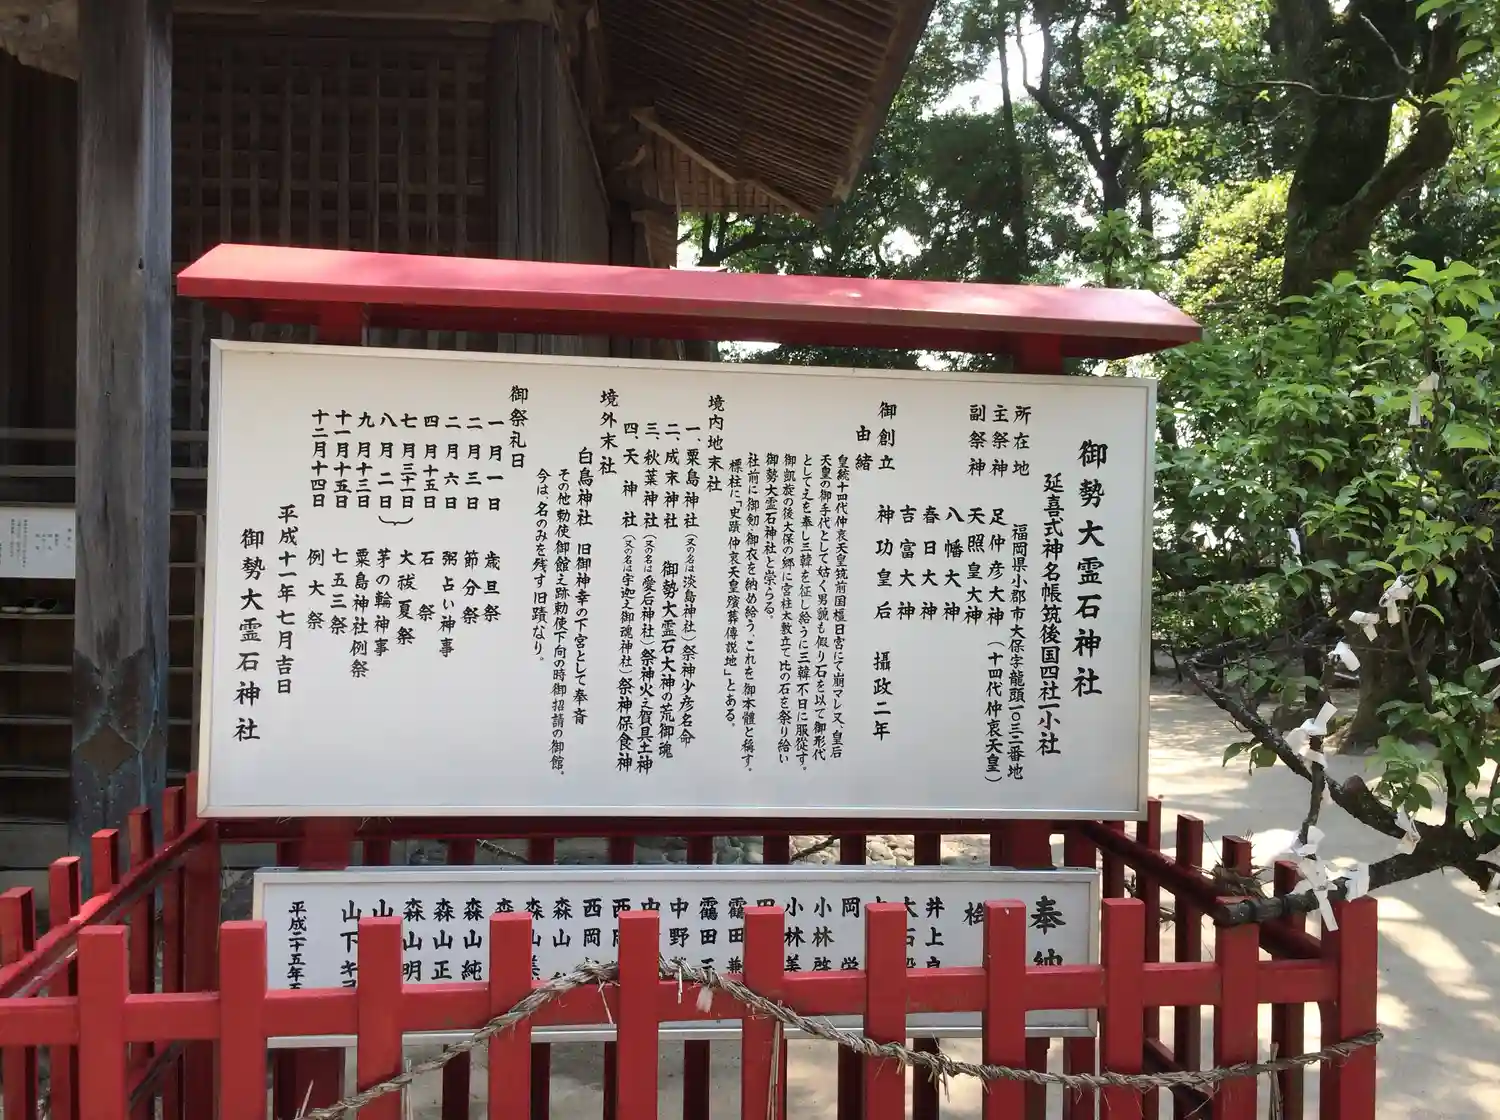 御勢大霊石神社
延喜式神名帳筑後国四社一小社
所在地　福岡県小郡市大保字龍頭一〇三二番地
主祭神　足仲彦大神（十四代仲哀天皇）
副祭神　天照皇大神
八幡大神
春日大神
吉富大神
神功皇后
御創立　攝政二年
由緒
皇統十四代仲哀天皇筑前国橿日宮にて崩マレ又、皇后
天皇の御手代として姑く男貌も仮り石を以て御形代
として之を奉し三韓を征し給うに三韓不日に服従す。
御凱旋の後大保の郷に宮柱太敷立て比の石を祭り給い
御勢大霊石神社と崇らる。
社前に御剱・御衣を納め給う、これを御本體と稱す。
標柱に「史蹟、仲哀天皇殯葬傳説地」とある。
境内地末社
一、粟島神社（又の名は淡島神社）祭神少彦名命
二、成末神社　御勢大霊石大神の荒御魂
三、秋葉神社（又の名は愛宕神社）祭神火之賀具土神
四、天神社（又の名は宇迦之御魂神社）祭神保食神
境外末社
白鳥神社　旧御神幸の下宮として奉斎
その他勅使御館之跡勅使下向の時御招請の御館。
今は、名のみを残す旧蹟なり。
御祭礼日
一月一日　歳旦祭
二月三日　節分祭
二月六日　粥占い神事
四月十五日　石祭
七月三十一日　大祓夏祭
八月二日　茅の輪神事
九月十三日　粟島神社例祭
十一月十五日　七五三祭
十二月十四日　例大祭
平成十一年七月吉日
御勢大霊石神社
奉納
井上
大石
岡
小林
小林美
靏田兼
靏田
中野
西岡
森山
森山純
森山正
森山明
山下キヨ
平成二十五年五